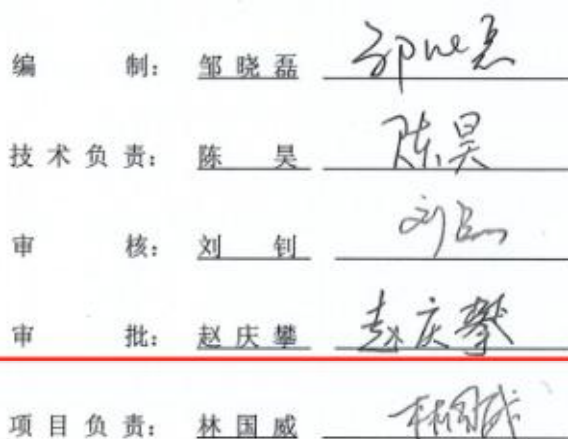 编 制: 邹晓磊 邹晓磊
技术负责: 陈 昊 陈昊
审 核: 刘 钊 刘钊
审 批: 赵庆攀 赵庆攀
项目负责: 林国威 林国威